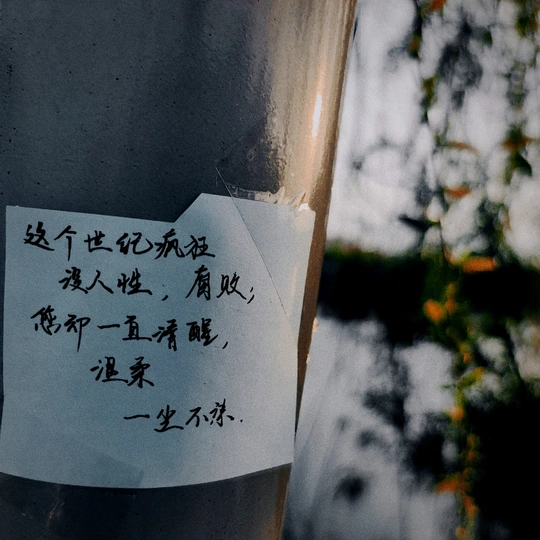 这个世纪疯狂
没人性，腐败；
您却一直清醒，
温柔
一尘不染.